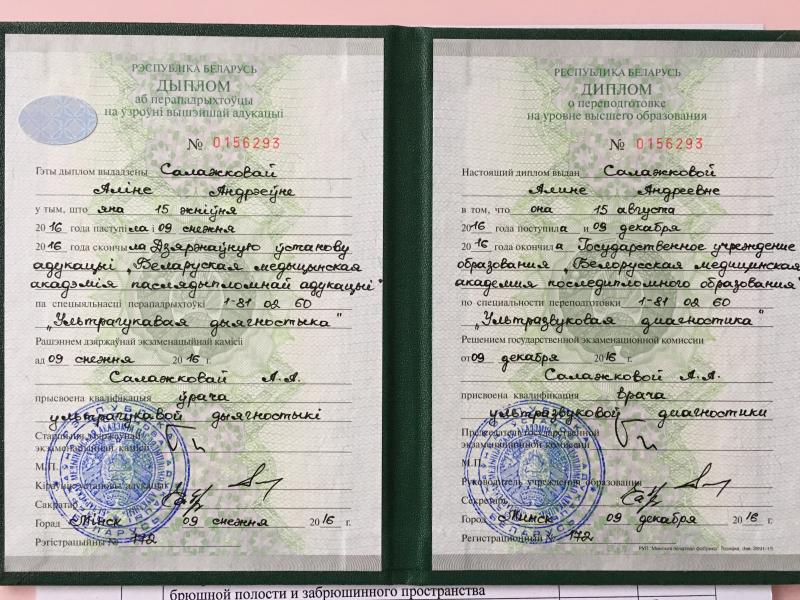 РЭСПУБЛІКА БЕЛАРУСЬ
ДЫПЛОМ
аб перападрыхтоўцы
на ўзроўні вышэйшай адукацыі
№ 0156293
Гэты дыплом выдадзены Салажковай
Аліне Андрэеўне
у тым, што яна 15 жніўня
2016 года паступіла і 09 снежня
2016 года скончыла Дзяржаўную ўстанову
адукацыі „Беларуская медыцынская
акадэмія паслядыпломнай адукацыі"
па спецыяльнасці перападрыхтоўкі 1-81 02 60
„Ультрагукавая дыягностыка"
Рашэннем дзяржаўнай экзаменацыйнай камісіі
ад 09 снежня 2016 г.
Салажковай А.А.
прысвоена кваліфікацыя ўрача
ультрагукавой дыягностыкі
Старшыня дзяржаўнай
экзаменацыйнай камісіі
М.П.
Кіраўнік установы адукацыі
Сакратар
Горад Мінск 09 снежня 2016 г.
Рэгістрацыйны № 172
РЕСПУБЛИКА БЕЛАРУСЬ
ДИПЛОМ
о переподготовке
на уровне высшего образования
№ 0156293
Настоящий диплом выдан Салажковой
Алине Андреевне
в том, что она 15 августа
2016 года поступила и 09 декабря
2016 года окончила Государственное учреждение
образования „Белорусская медицинская
академия последипломного образования"
по специальности переподготовки 1-81 02 60
„Ультразвуковая диагностика"
Решением государственной экзаменационной комиссии
от 09 декабря 2016 г.
Салажковой А.А.
присвоена квалификация врача
ультразвуковой диагностики
Председатель государственной
экзаменационной комиссии
М.П.
Руководитель учреждения образования
Секретарь
Город Минск 09 декабря 2016 г.
Регистрационный № 172
РУП "Минская печатная фабрика"
брюшной полости и забрюшинного пространства